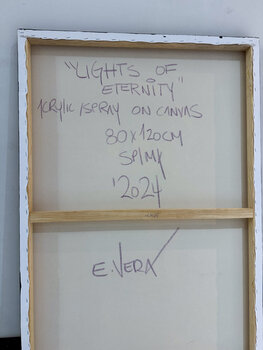 "LIGHTS OF
ETERNITY"
ACRYLIC/SPRAY ON CANVAS
80X120CM
'2024
E.VERA